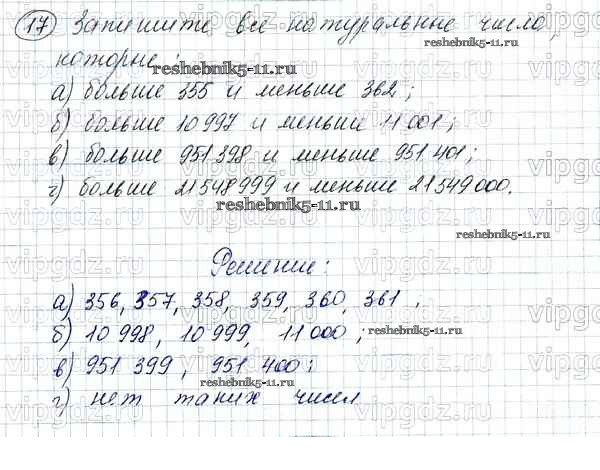 17 Запишите все натуральные числа,
которые:
reshebnik5-11.ru
а) больше 355 и меньше 362;
б) больше 10 997 и меньше 11 001;
в) больше 951 398 и меньше 951 401;
г) больше 21 548 999 и меньше 21 549 000.
reshebnik5-11.ru
reshebnik5-11.ru
Решение:
а) 356, 357, 358, 359, 360, 361;
б) 10 998, 10 999, 11 000;
reshebnik5-11.ru
в) 951 399, 951 400;
reshebnik5-11.ru
г) нет таких чисел
vipgdz.ru